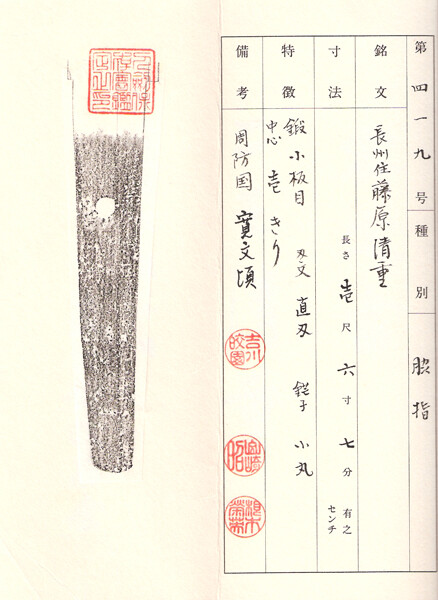 第四一九号 種別 脇指
銘文 長州住藤原清重
寸法 長さ 壱尺六寸七分 有之 センチ
特徴 鍛 小板目 刃文 直刃 鋩子 小丸
中心 壱 きり
備考 周防国 寛文頃
吉川